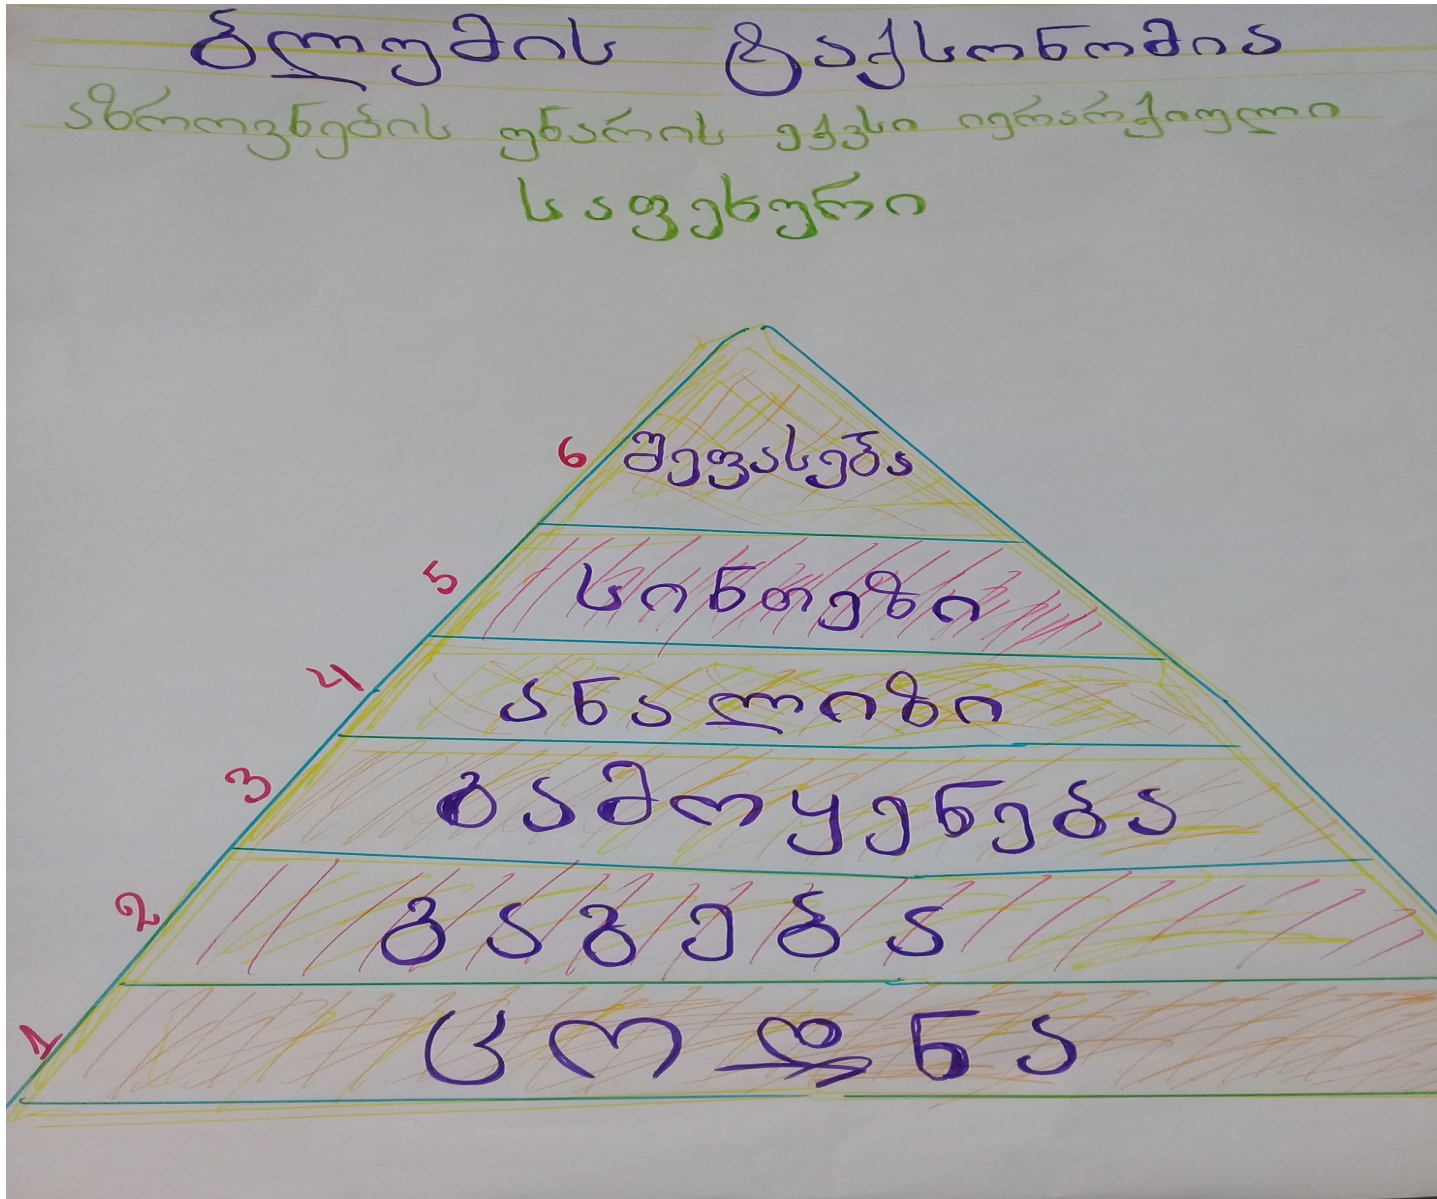 ბლუმის ტაქსონომია
აზროვნების უნარის ექვსი იერარქიული
საფეხური
6 შეფასება
5 სინთეზი
4 ანალიზი
3 გამოყენება
2 გაგება
1 ცოდნა